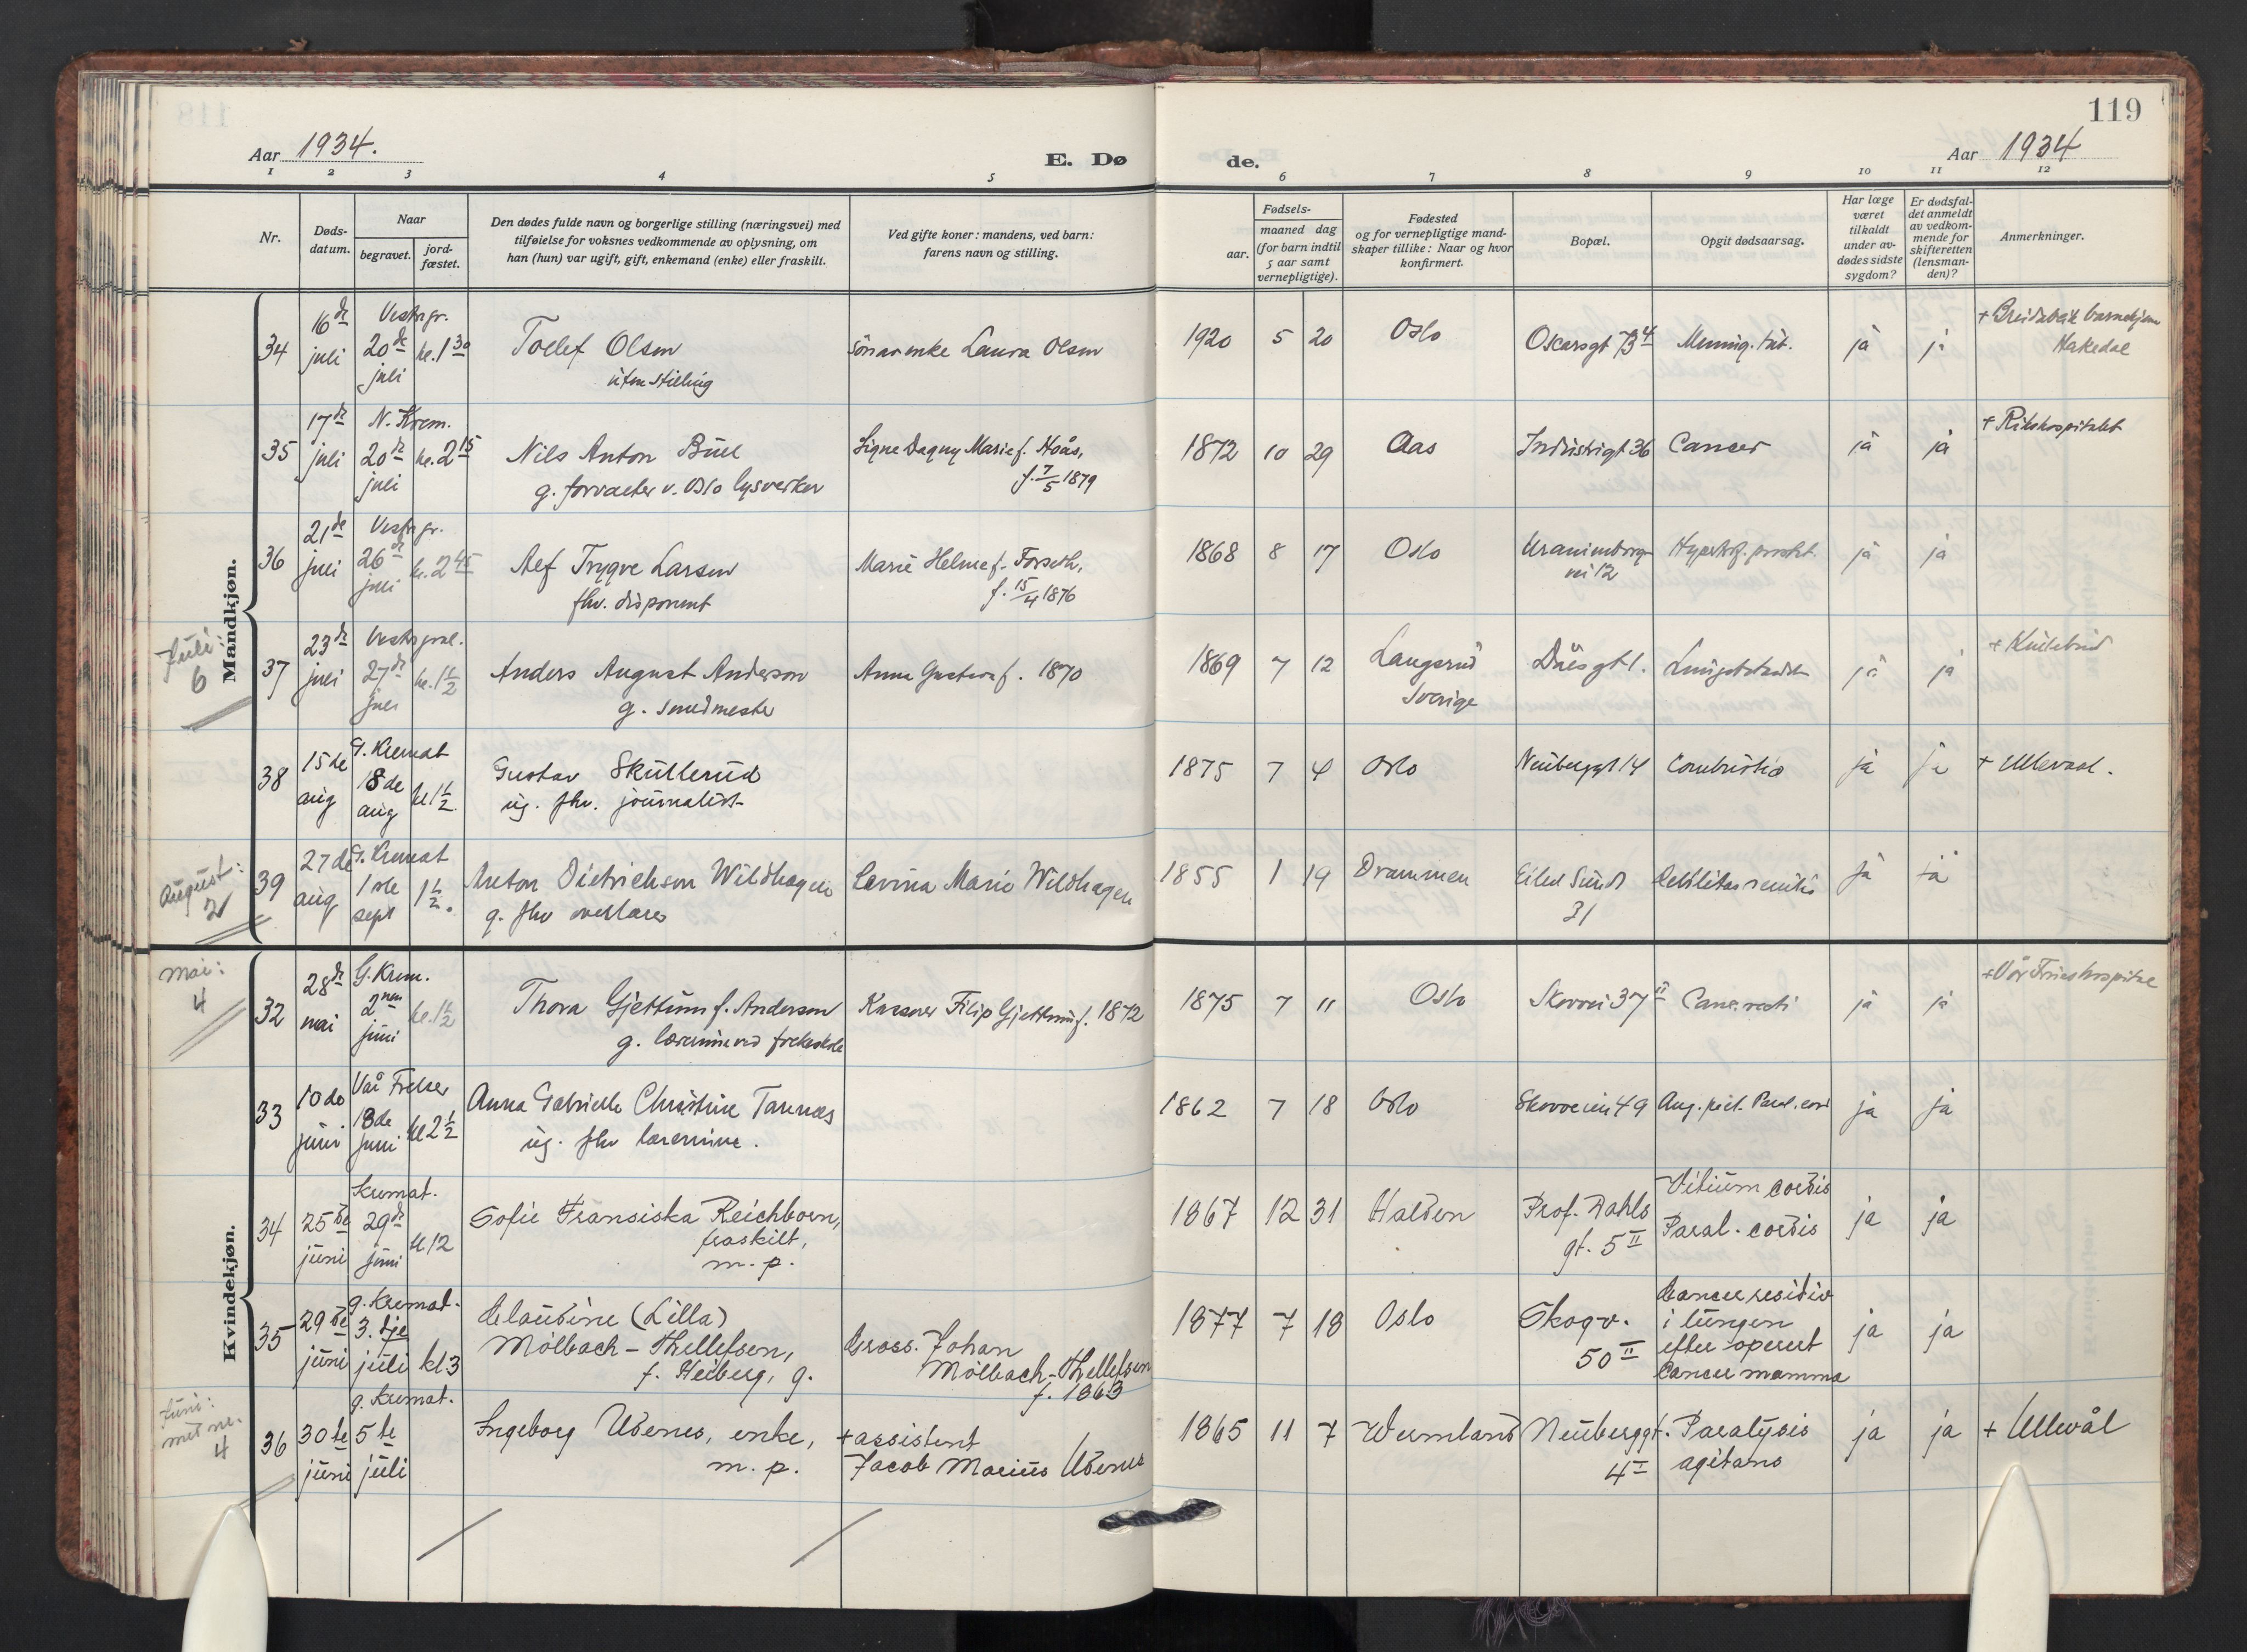 119
Aar 1934.
E. Dø
de.
Aar 1934
1 2 3 4 5 6 7 8 9 10 11 12
Nr.
Døds-
datum.
Naar
begravet.
jord-
fæstet.
Den dødes fulde navn og borgerlige stilling (næringsvei) med
tilføielse for voksnes vedkommende av oplysning, om
han (hun) var ugift, gift, enkemand (enke) eller fraskilt.
Ved gifte koner: mandens, ved barn:
farens navn og stilling.
Fødsels-
aar.
maaned dag
(for barn indtil
5 aar samt
vernepligtige).
Fødested
og for vernepligtige mand-
skaper tillike: Naar og hvor
konfirmert.
Bopæl.
Opgit dødsaarsag.
Har læge
været
tilkaldt
under av-
dødes sidste
sygdom?
Er dødsfal-
det anmeldt
av vedkom-
mende for
skifteretten
(lensman-
den)?
Anmerkninger.
Mandkjøn.
34
16de
juli
Vestre gr.
20de
juli
kl. 1 30
Tollef Olsen
uten stilling
Sön av enke Laura Olsen
1920 5 20
Oslo
Oscarsgt 73 4
Mening. tub.
ja
ja
Hakedal
35
17de
juli
N. Krem.
20de
juli
kl. 2 15
Nils Anton Bull
g. forvalter v. Oslo lysverker
Signe Dagny Marie f. Hoås,
f. 7/5 1879
1872 10 29
Aas
Industrigt 36
Cancer
ja
ja
+ Rikshospitalet
36
21de
juli
Vestre gr.
26de
juli
kl. 2 45
Alf Trygve Larsen
fhv. disponent
Marie Helme f. Forseth,
f. 15/4 1876
1868 8 17
Oslo
Uranienborg-
vei 12
Hypertrof. prostat.
ja
ja
Juli:
6
37
23de
juli
27de
juli
kl. 1 1/2
Anders August Anderson
g. smedmester
Anna Gustava f. 1870
1869 7 12
Langerud
Sverige
Daasgt 1.
ja
ja
38
15de
aug
G. Kremat
18de
aug
kl 1 1/2
Gustav Skullerud
ug. fhv. journalist
1875 7 4
Oslo
Neuberggt 14
Combustio
ja
ja
+ Ullevaal.
August:
2
39
27de
aug
G. Kremat
1ste
sept
1 1/2.
Anton Dietrichson Wildhagen
g. fhv overlærer
Lovina Marie Wildhagen
1855 1 19
Drammen
Eilert Sundt
31
Debilitas senilis
ja
ja
Kvindekjøn.
Mai:
4
32
28de
mai
G. Krem.
2nen
juni
kl. 1 1/2
Thora Gjettum f. Anderson
g. lærerinne ved folkeskole
Kasserer Filip Gjettum f. 1872
1875 7 11
Oslo
Skovvei 37 II
Canc. recti
ja
ja
33
10de
juni
Vår Frelser
13de
juni
kl 2 1/2
Anna Gabrielle Christine Tannæs
ug. fhv lærerinne.
1862 7 18
Oslo
Skovveien 49
Ang. pect. Paral. cord
ja
ja
34
25de
juni
Kremat.
29de
juni
kl 12
Sofie Fransiska Reichborn,
fraskilt,
m. p.
1867 12 31
Halden
Prof. Dahls
gt. 5 II
Vitium cordis
Paral. cordis
ja
ja
35
29de
juni
g. Kremat.
3. dje
juli
kl 3
Claudine (Lilla)
Mölbach-Thellefsen,
f. Heiberg, g.
Gross. Johan
Mölbach-Thellefsen
f. 1863
1877 7 18
Oslo
Skogv.
50 II
Cancer residiv
i lungen
efter operert
Cancer mamma
ja
ja
Juni:
4
36
30te
juni
g. Kremat.
5te
juli
Ingeborg Udenes, enke,
m. p.
+ assistent
Jacob Marius Udenes
1865 11 7
Wermland
Neuberggt.
4 I
Paralysis
agitans
ja
ja
+ Ullevål